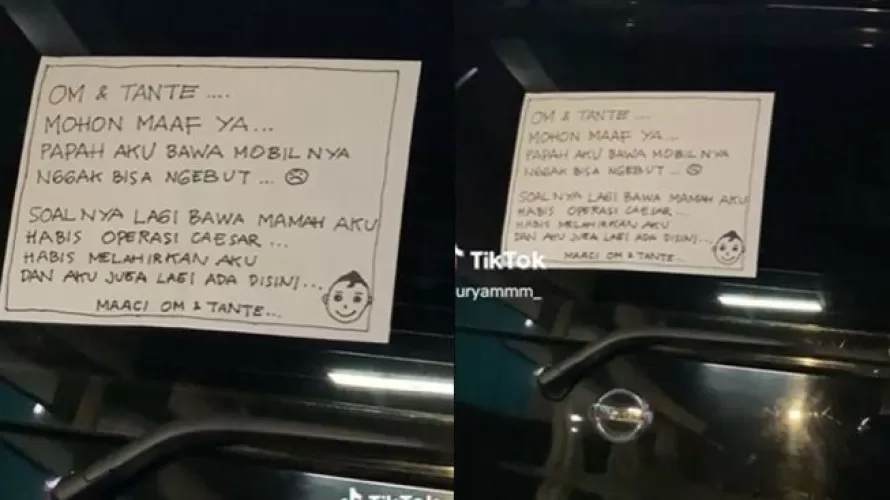 OM & TANTE ....
MOHON MAAF YA...
PAPAH AKU BAWA MOBILNYA
NGGAK BISA NGEBUT ... ☹
SOALNYA LAGI BAWA MAMAH AKU
HABIS OPERASI CAESAR ...
HABIS MELAHIRKAN AKU
DAN AKU JUGA LAGI ADA DISINI...
MAACI OM & TANTE...
TikTok
OM & TANTE ....
MOHON MAAF YA...
PAPAH AKU BAWA MOBILNYA
NGGAK BISA NGEBUT ... ☹
SOALNYA LAGI BAWA MAMAH AKU
HABIS OPERASI CAESAR ...
HABIS MELAHIRKAN AKU
DAN AKU JUGA LAGI ADA DISINI...
MAACI OM & TANTE...
TikTok
uryammm_